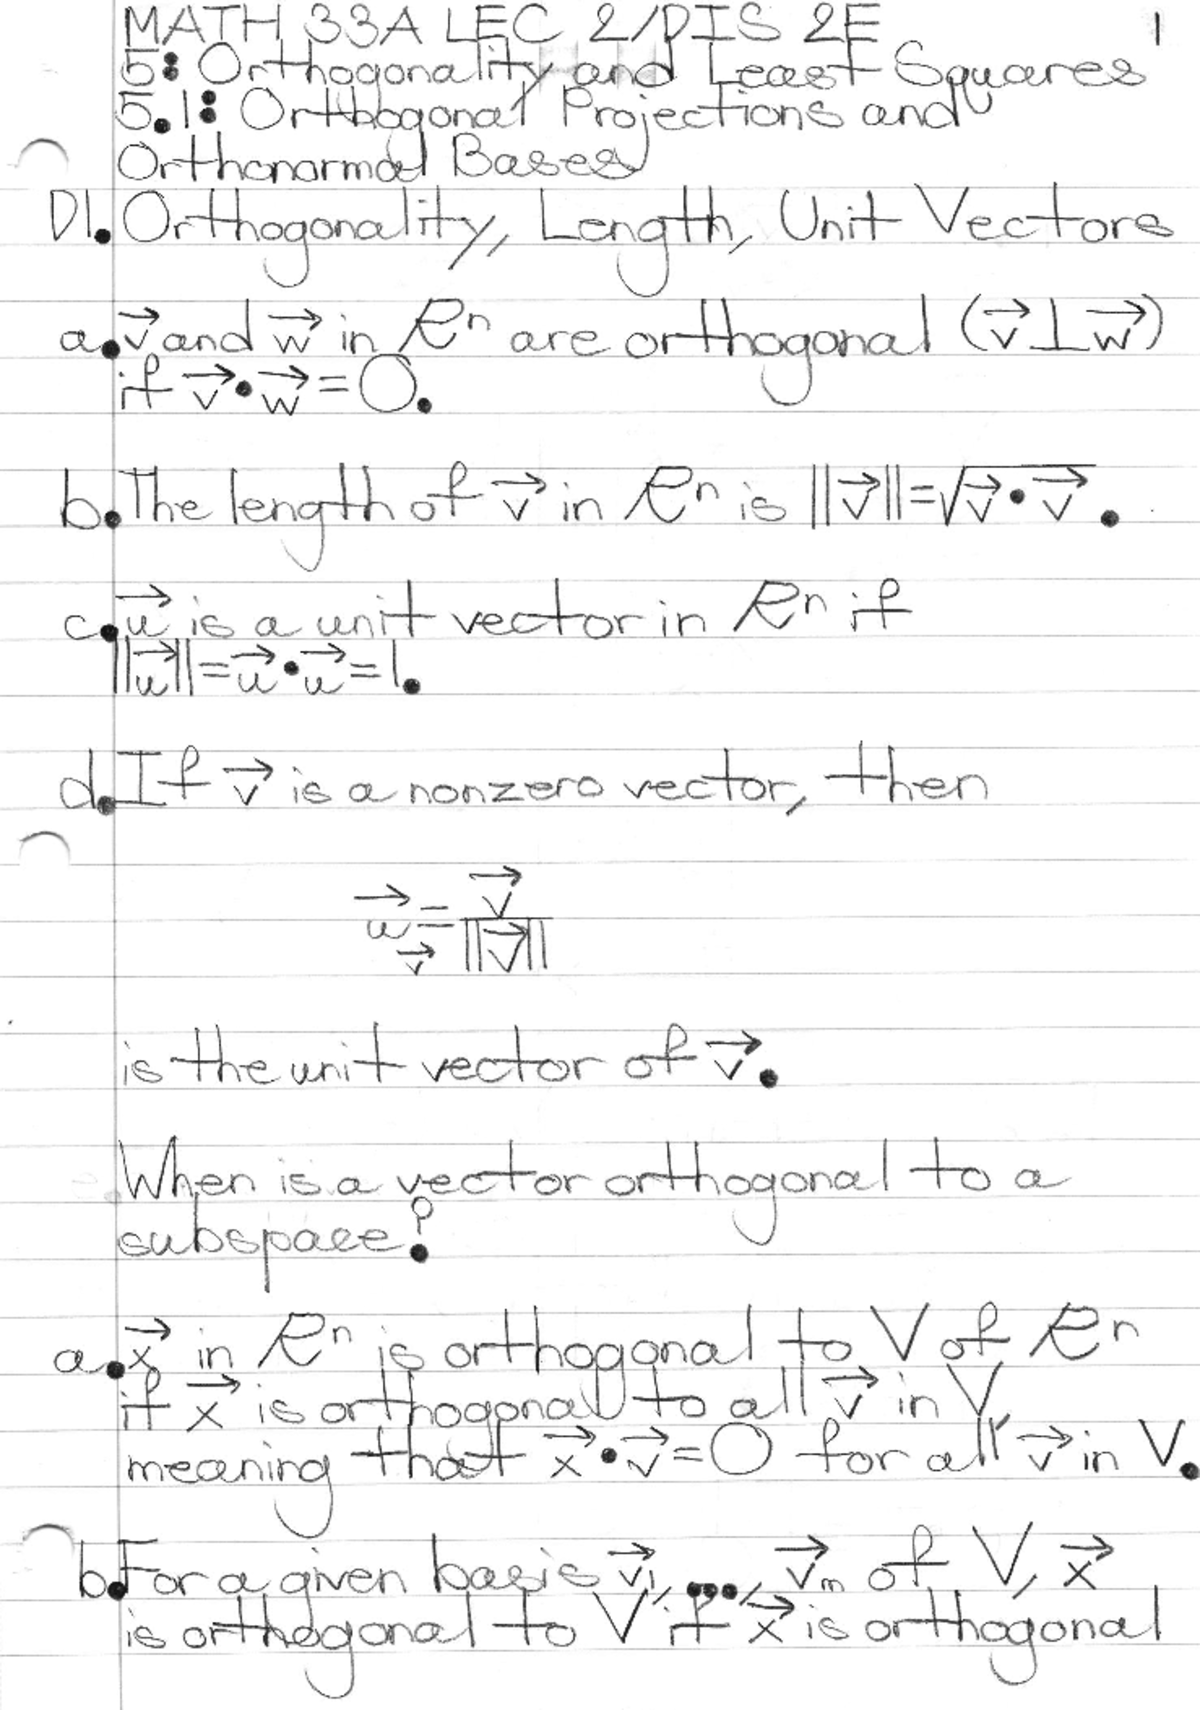 MATH 33A LEC 2/DIS 2E 1
5: Orthogonality and Least Squares
5.1: Orthogonal Projections and
Orthonormal Bases
D1. Orthogonality, Length, Unit Vectors
a. v⃗ and w⃗ in ℝⁿ are orthogonal (v⃗ ⊥ w⃗)
if v⃗ • w⃗ = 0.
b. The length of v⃗ in ℝⁿ is ||v⃗|| = √(v⃗ • v⃗).
c. u⃗ is a unit vector in ℝⁿ if
||u⃗|| = u⃗ • u⃗ = 1.
d. If v⃗ is a nonzero vector, then
u⃗_v⃗ = v⃗/||v⃗||
is the unit vector of v⃗.
When is a vector orthogonal to a
subspace?
a. x⃗ in ℝⁿ is orthogonal to V of ℝⁿ
if x⃗ is orthogonal to all v⃗ in V,
meaning that x⃗ • v⃗ = 0 for all v⃗ in V.
b. For a given basis v⃗₁, ..., v⃗ₘ of V, x⃗
is orthogonal to V if x⃗ is orthogonal